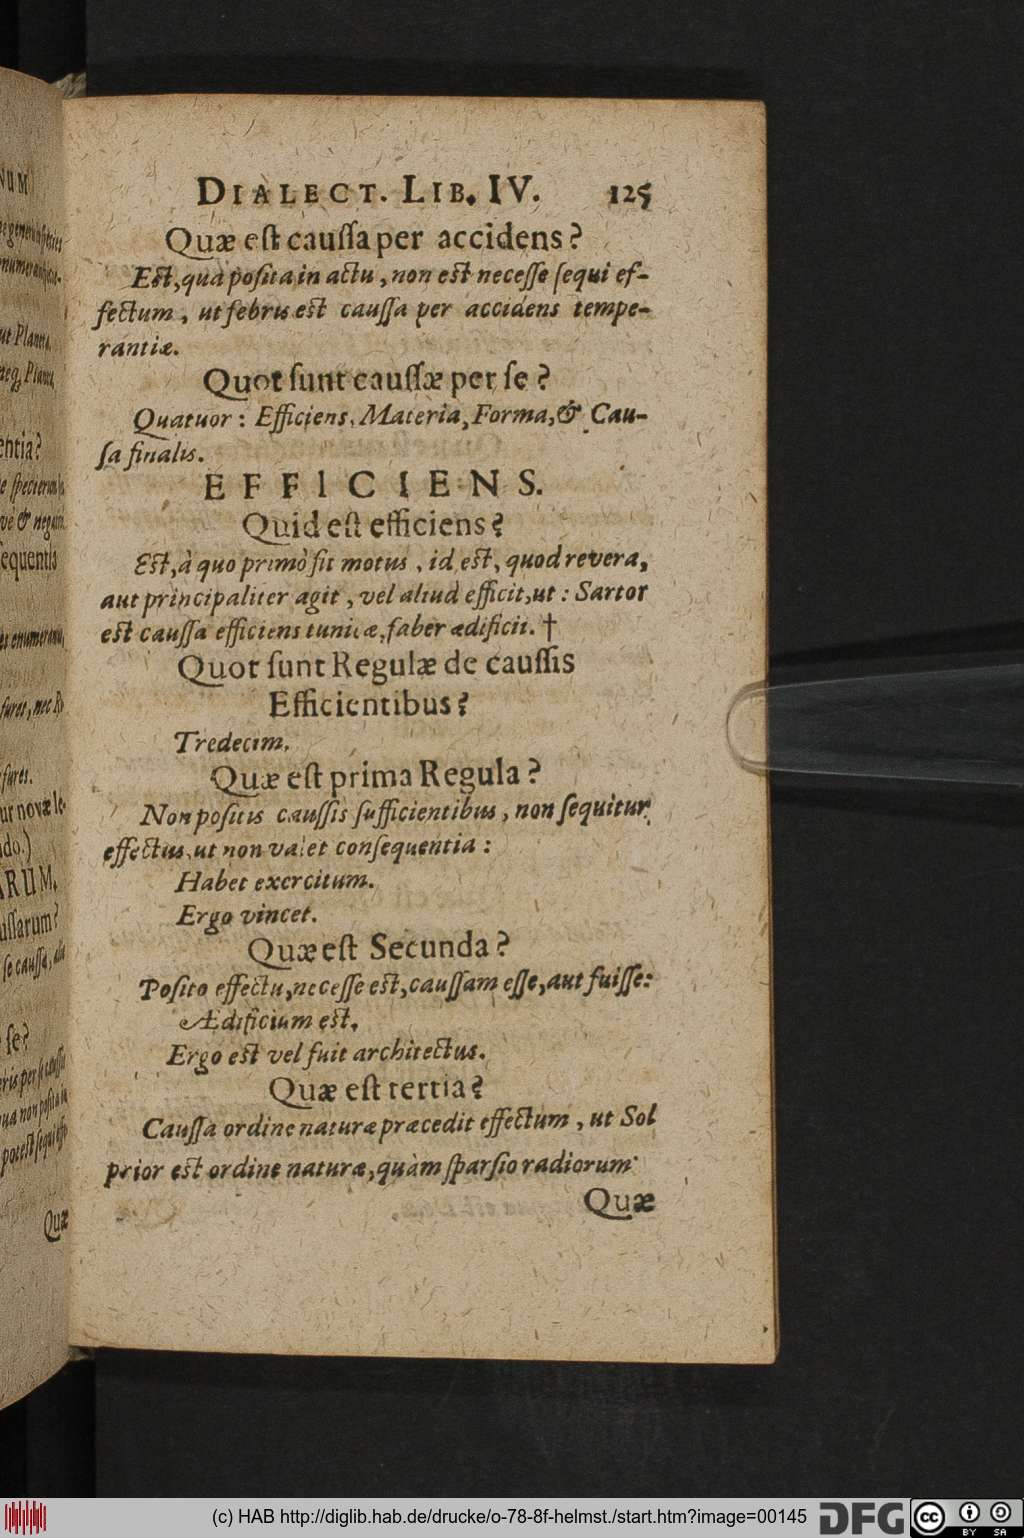 DIALECT. LIB. IV. 125
Quæ eſt cauſſa per accidens?
Eſt, qua poſita in actu, non eſt neceſſe ſequi ef-
fectum, ut febris eſt cauſſa per accidens tempe-
rantiæ.
Quot ſunt cauſſæ per ſe?
Quatuor: Efficiens, Materia, Forma, & Cau-
ſa finalis.
EFFICIENS.
Quid eſt efficiens?
Eſt, à quo primò fit motus, id eſt, quod revera,
aut principaliter agit, vel aliud efficit, ut: Sartor
eſt cauſſa efficiens tunicæ, faber ædificii. †
Quot ſunt Regulæ de cauſſis
Efficientibus?
Tredecim.
Quæ eſt prima Regula?
Non poſitis cauſſis ſufficientibus, non ſequitur
effectus, ut non valet conſequentia:
Habet exercitum.
Ergo vincet.
Quæ eſt Secunda?
Poſito effectu, neceſſe eſt, cauſſam eſſe, aut fuiſſe:
Ædificium eſt.
Ergo eſt vel fuit architectus.
Quæ eſt tertia?
Cauſſa ordine naturæ præcedit effectum, ut Sol
prior eſt ordine naturæ, quàm ſparſio radiorum.
Quæ
NUM
ut Planta,
neq, Planta,
entia?
ve & negat
ſequentia
ſures, nec
ſures.
ur novæ le-
do.)
ARUM.
uſſarum?
ſe cauſſa,
ſe?
Quæ
(c) HAB http://diglib.hab.de/drucke/o-78-8f-helmst./start.htm?image=00145
DFG
cc
BY SA